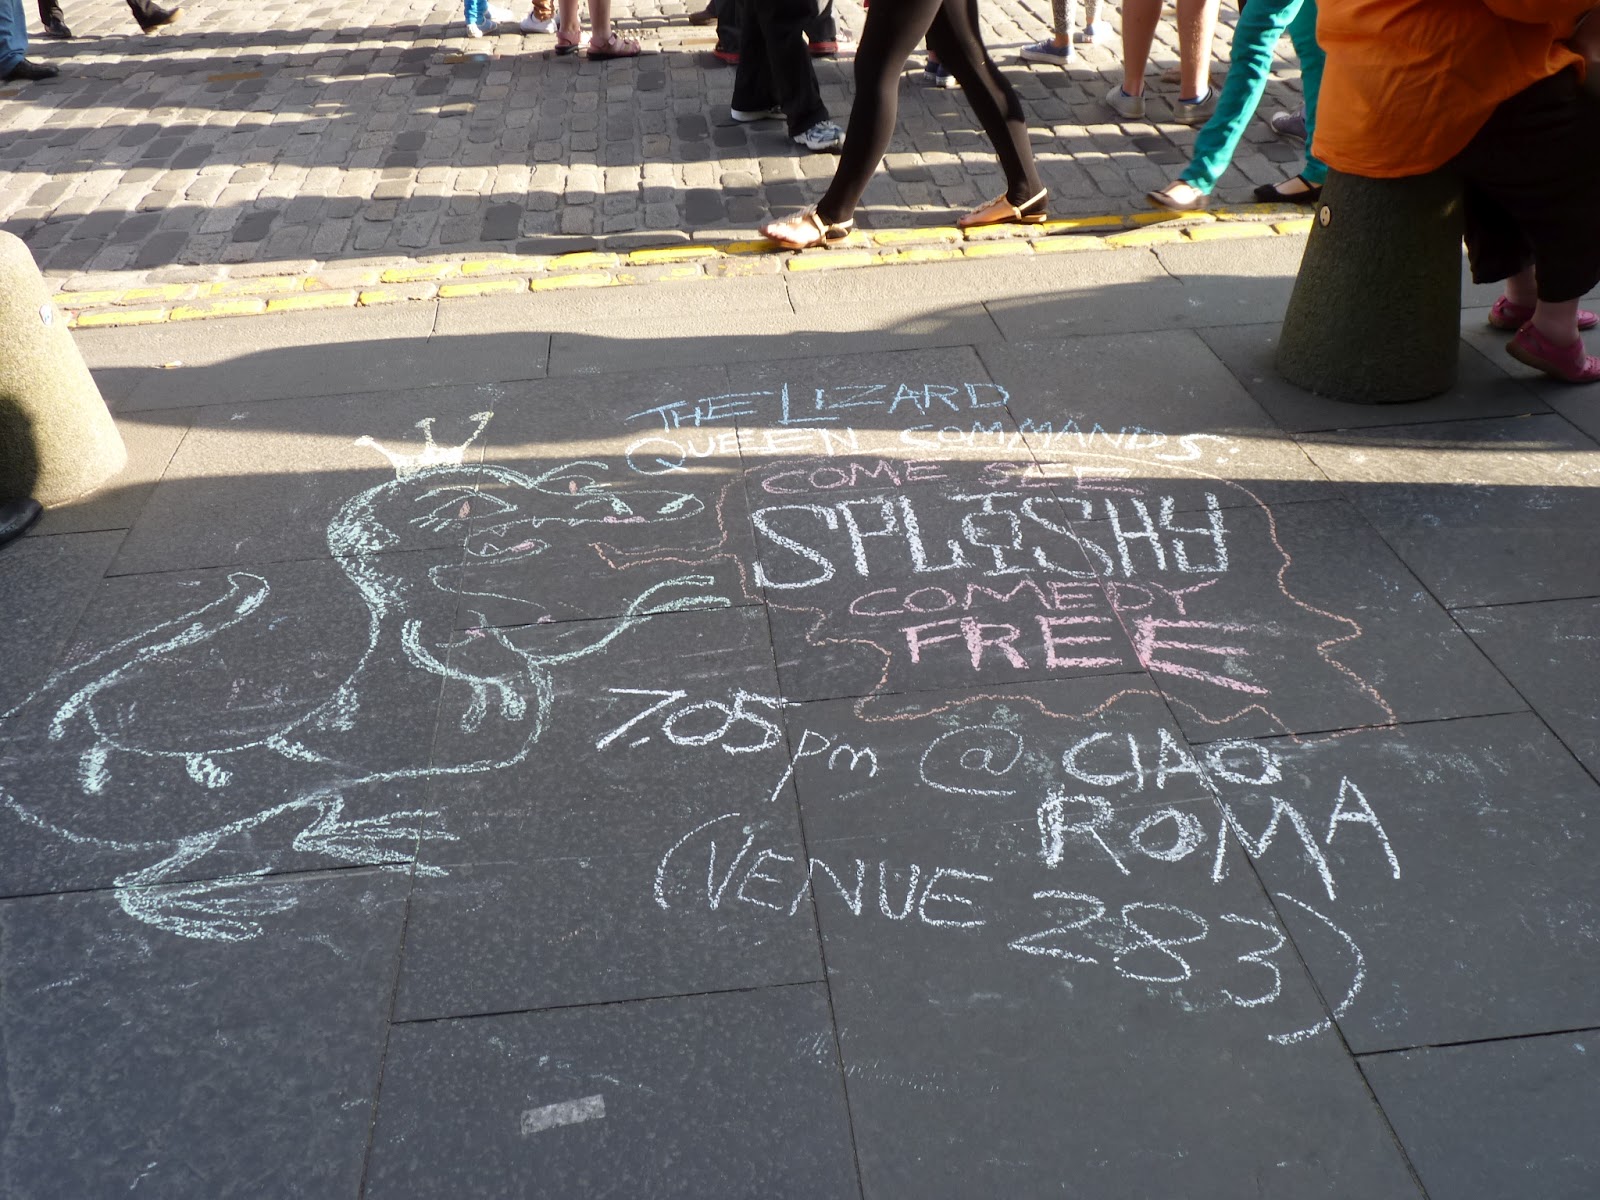 THE LIZARD
QUEEN COMMANDS:
COME SEE
SPLISHY
COMEDY
FREE
7.05pm @ CIAO
ROMA
(VENUE 283)